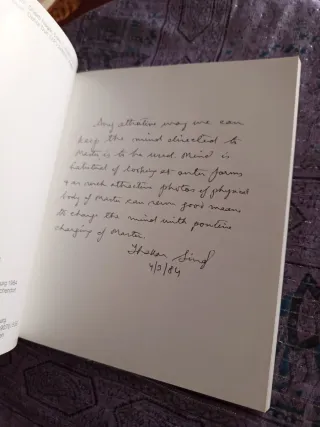 Any attrative way we can
keep the mind directed to
Master is to be used. Mind is
habitual of looking at outer forms
& as such attractive photos of physical
body of Master can good means
to charge the mind with
charging of Master.
Thakar Singh
4/3/84